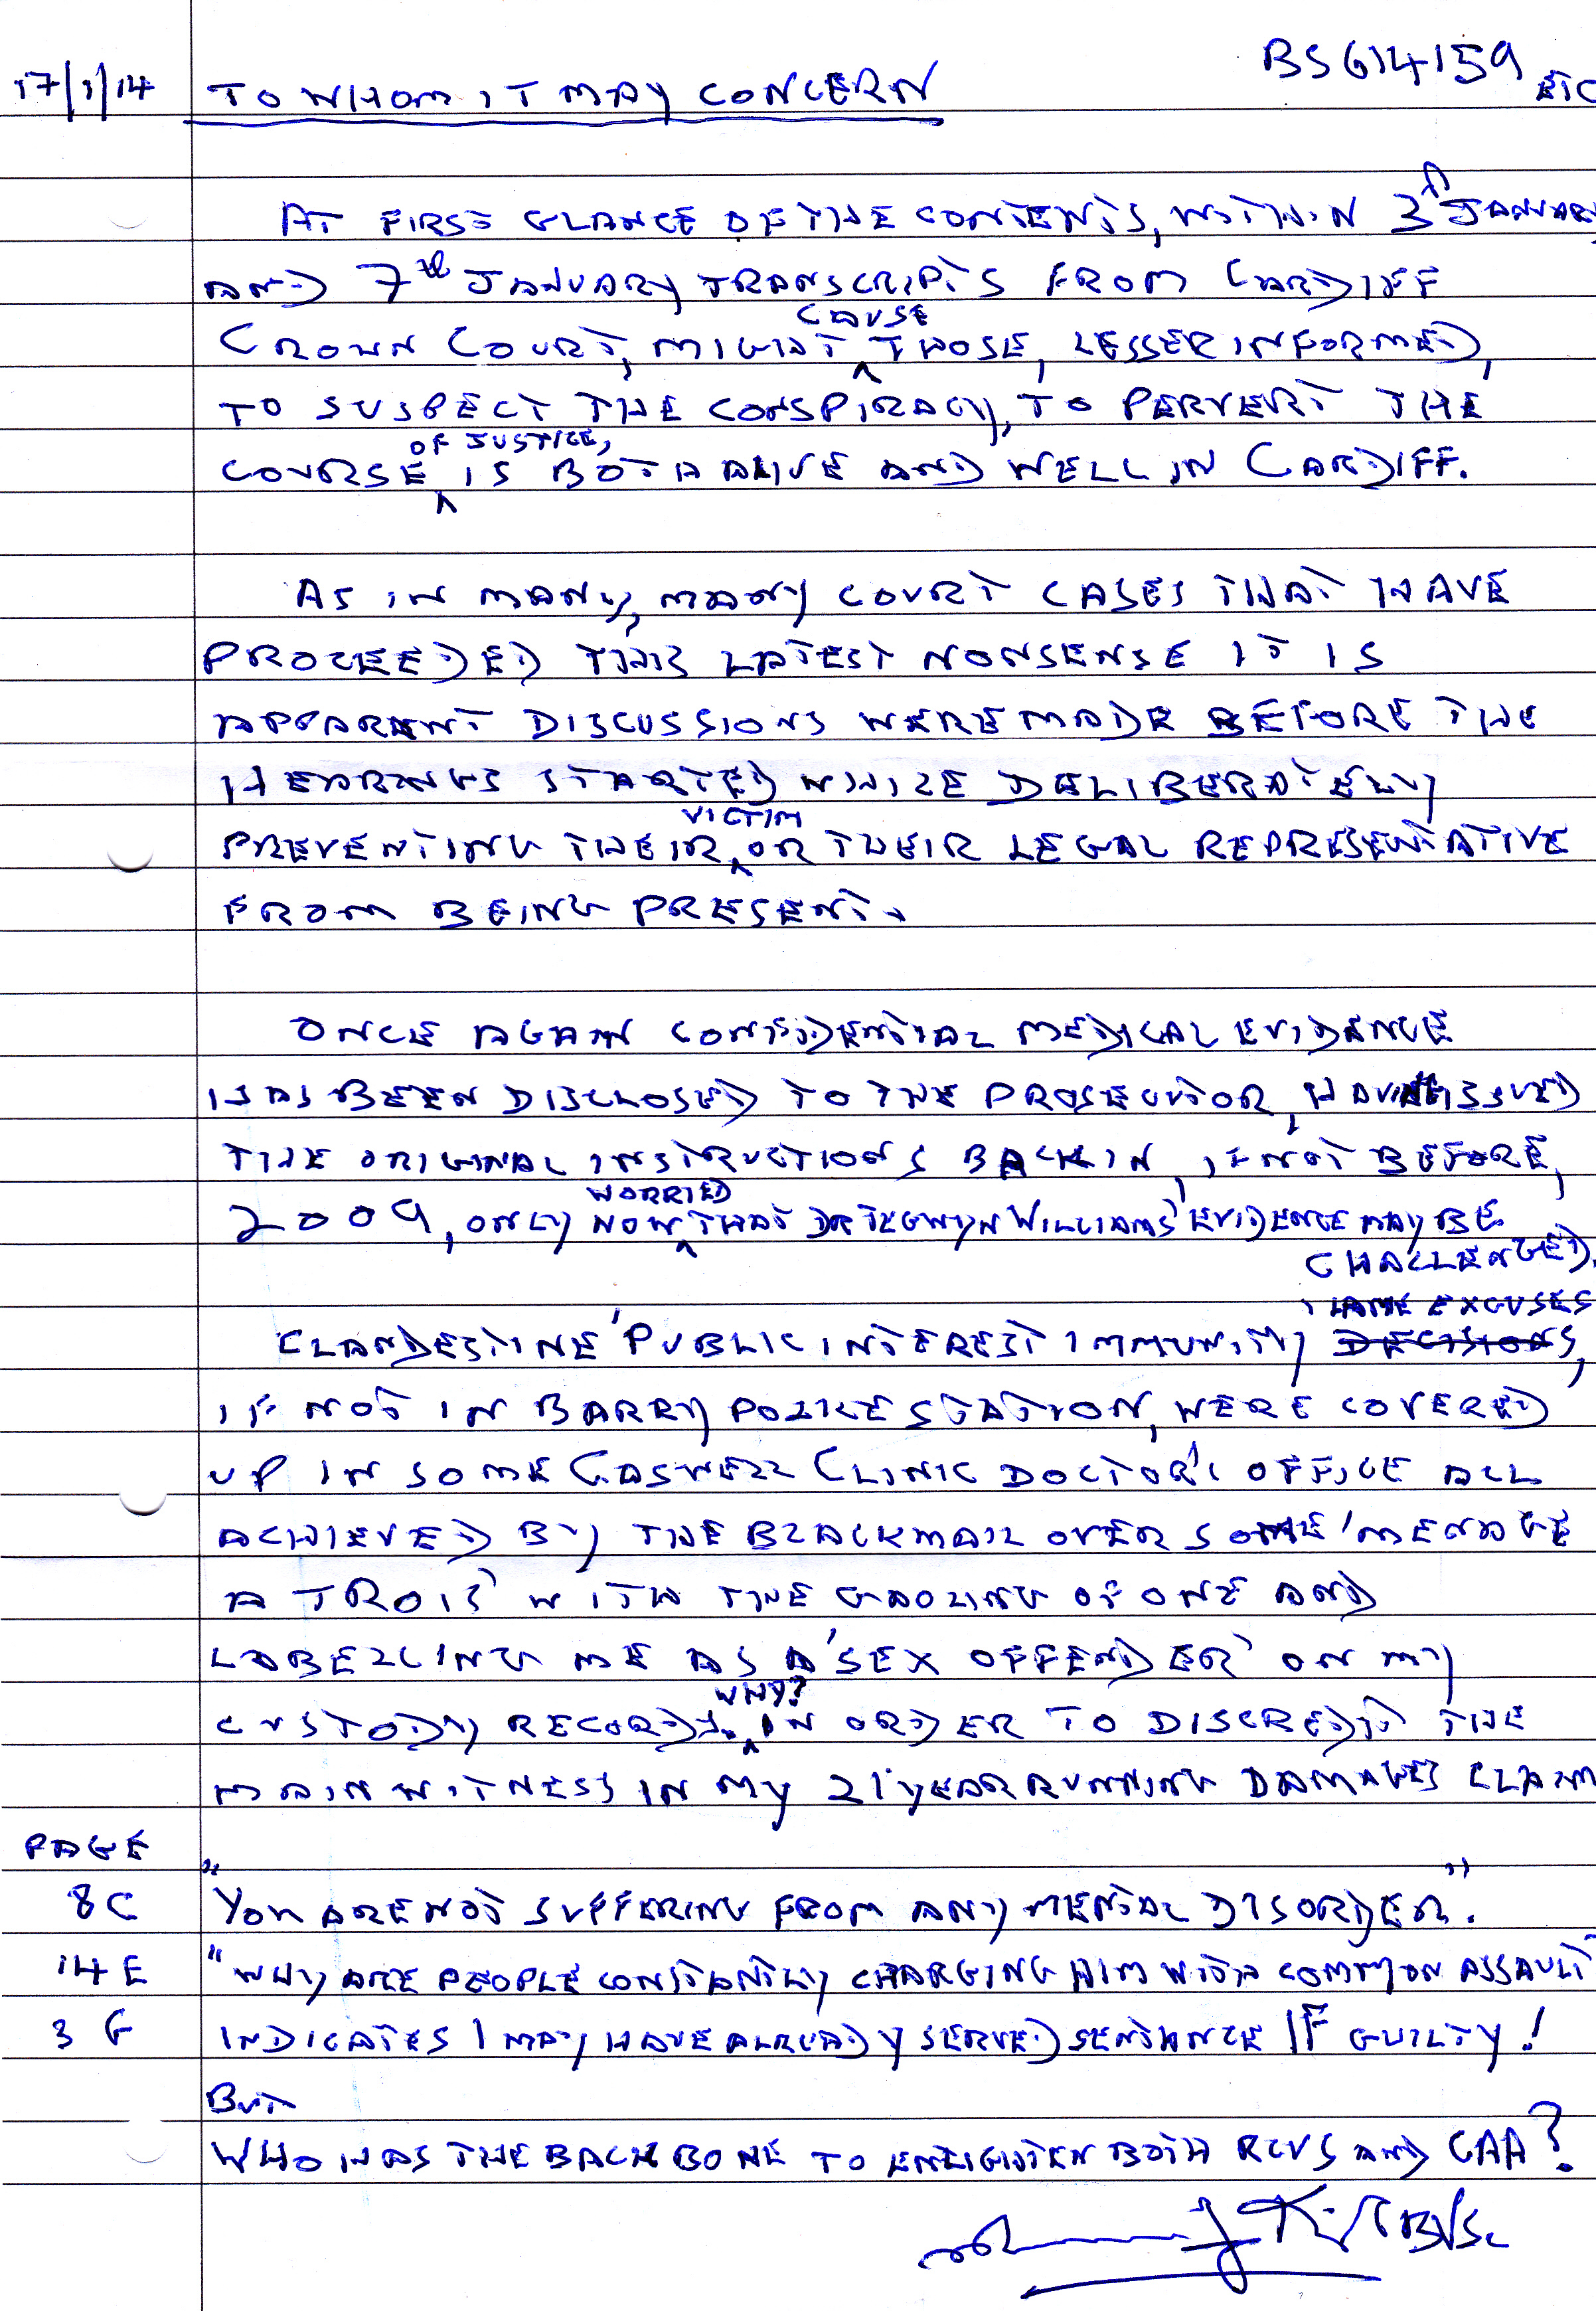 BS614159 ETC
17/1/14 TO WHOM IT MAY CONCERN
AT FIRST GLANCE OF THE CONTENTS, WITHIN 3rd JANUARY
AND 7th JANUARY TRANSCRIPTS FROM CARDIFF
CROWN COURT, MIGHT CAUSE THOSE, LESSER INFORMED,
TO SUSPECT THE CONSPIRACY, TO PERVERT THE
COURSE OF JUSTICE, IS BOTH ALIVE AND WELL IN CARDIFF.
AS IN MANY, MANY COURT CASES THAT HAVE
PROCEEDED THIS LATEST NONSENSE IT IS
APPARENT DISCUSSIONS WERE MADE BEFORE THE
HEARINGS STARTED WHILE DELIBERATELY
PREVENTING THEIR VICTIM OR THEIR LEGAL REPRESENTATIVE
FROM BEING PRESENT.
ONCE AGAIN CONFIDENTIAL MEDICAL EVIDENCE
HAS BEEN DISCLOSED TO THE PROSECUTOR, HAVING ISSUED
THE ORIGINAL INSTRUCTIONS BACK IN, IF NOT BEFORE,
2009, ONLY NOW WORRIED THAT DR TEGWYN WILLIAMS' EVIDENCE MAY BE
CHALLENGED.
CLANDESTINE 'PUBLIC INTEREST IMMUNITY' LAME EXCUSES DECISIONS,
IF NOT IN BARRY POLICE STATION, WERE COVERED
UP IN SOME CASWELL CLINIC DOCTOR'S OFFICE ALL
ACHIEVED BY THE BLACKMAIL OVER SOME 'MENAGE
A TROIS' WITH THE GAOLING OF ONE AND
LABELLING ME AS A 'SEX OFFENDER' ON MY
CUSTODY RECORDS. WHY? IN ORDER TO DISCREDIT THE
MAIN WITNESS IN MY 21 YEAR RUNNING DAMAGES CLAIM
PAGE
8C "YOU ARE NOT SUFFERING FROM ANY MENTAL DISORDER".
14E "WHY ARE PEOPLE CONSTANTLY CHARGING HIM WITH COMMON ASSAULT"
3G INDICATES I MAY HAVE ALREADY SERVED SENTANCE IF GUILTY!
BUT
WHO HAS THE BACKBONE TO ENLIGHTEN BOTH RCVS AND CAA?